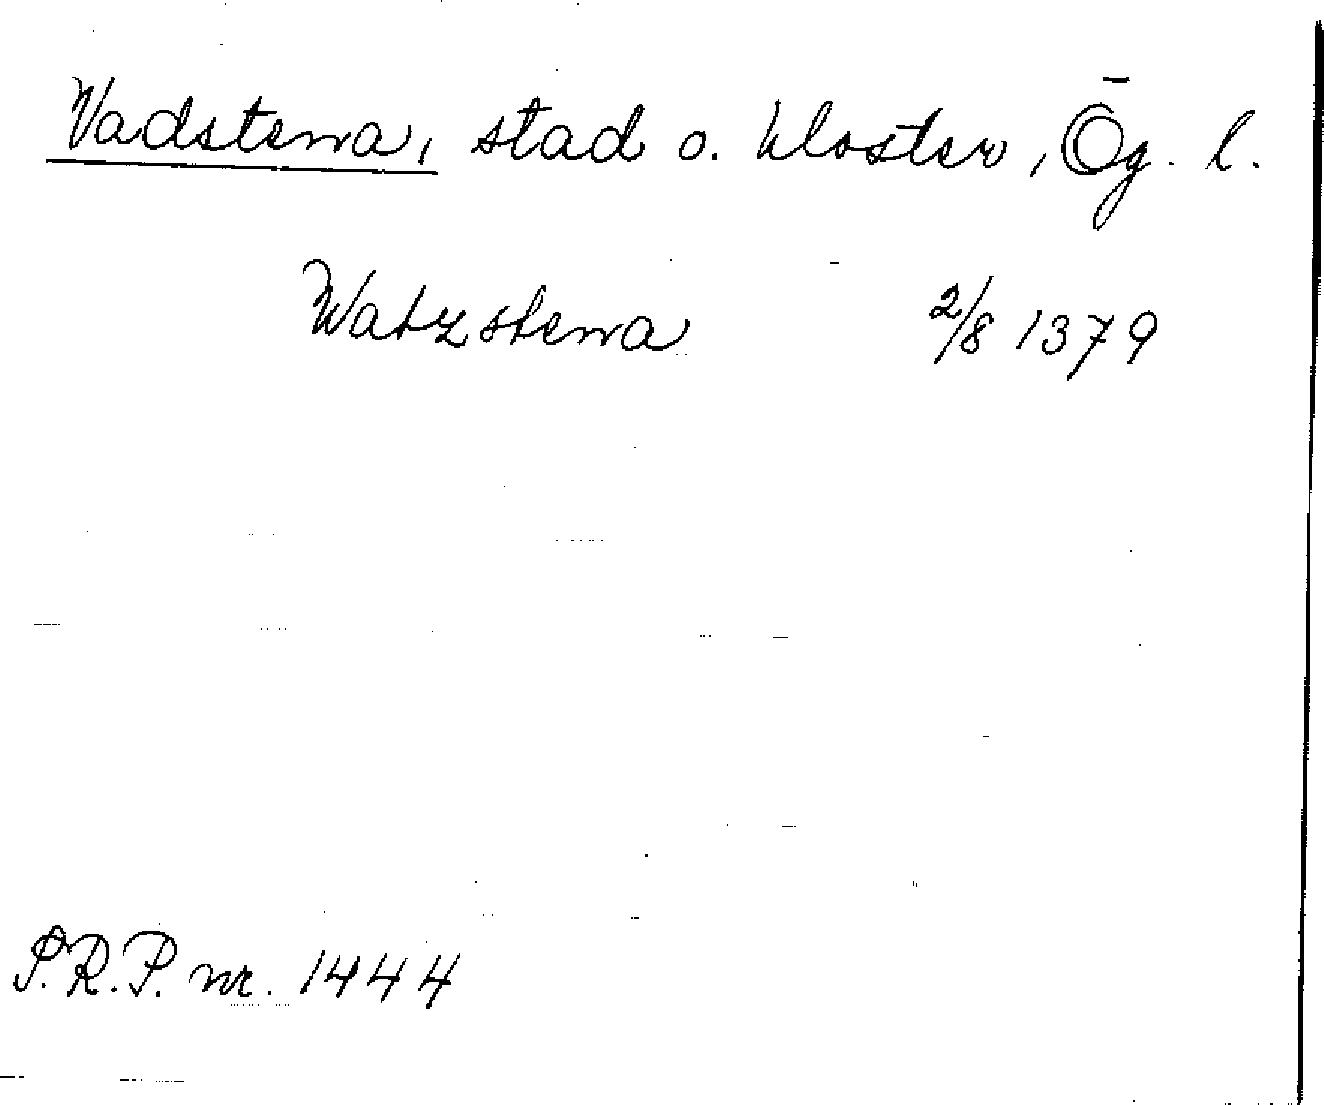 Vadstena, stad o. kloster, Ög. l.
Watzstena 2/8 1379
S.R.P. nr. 1444